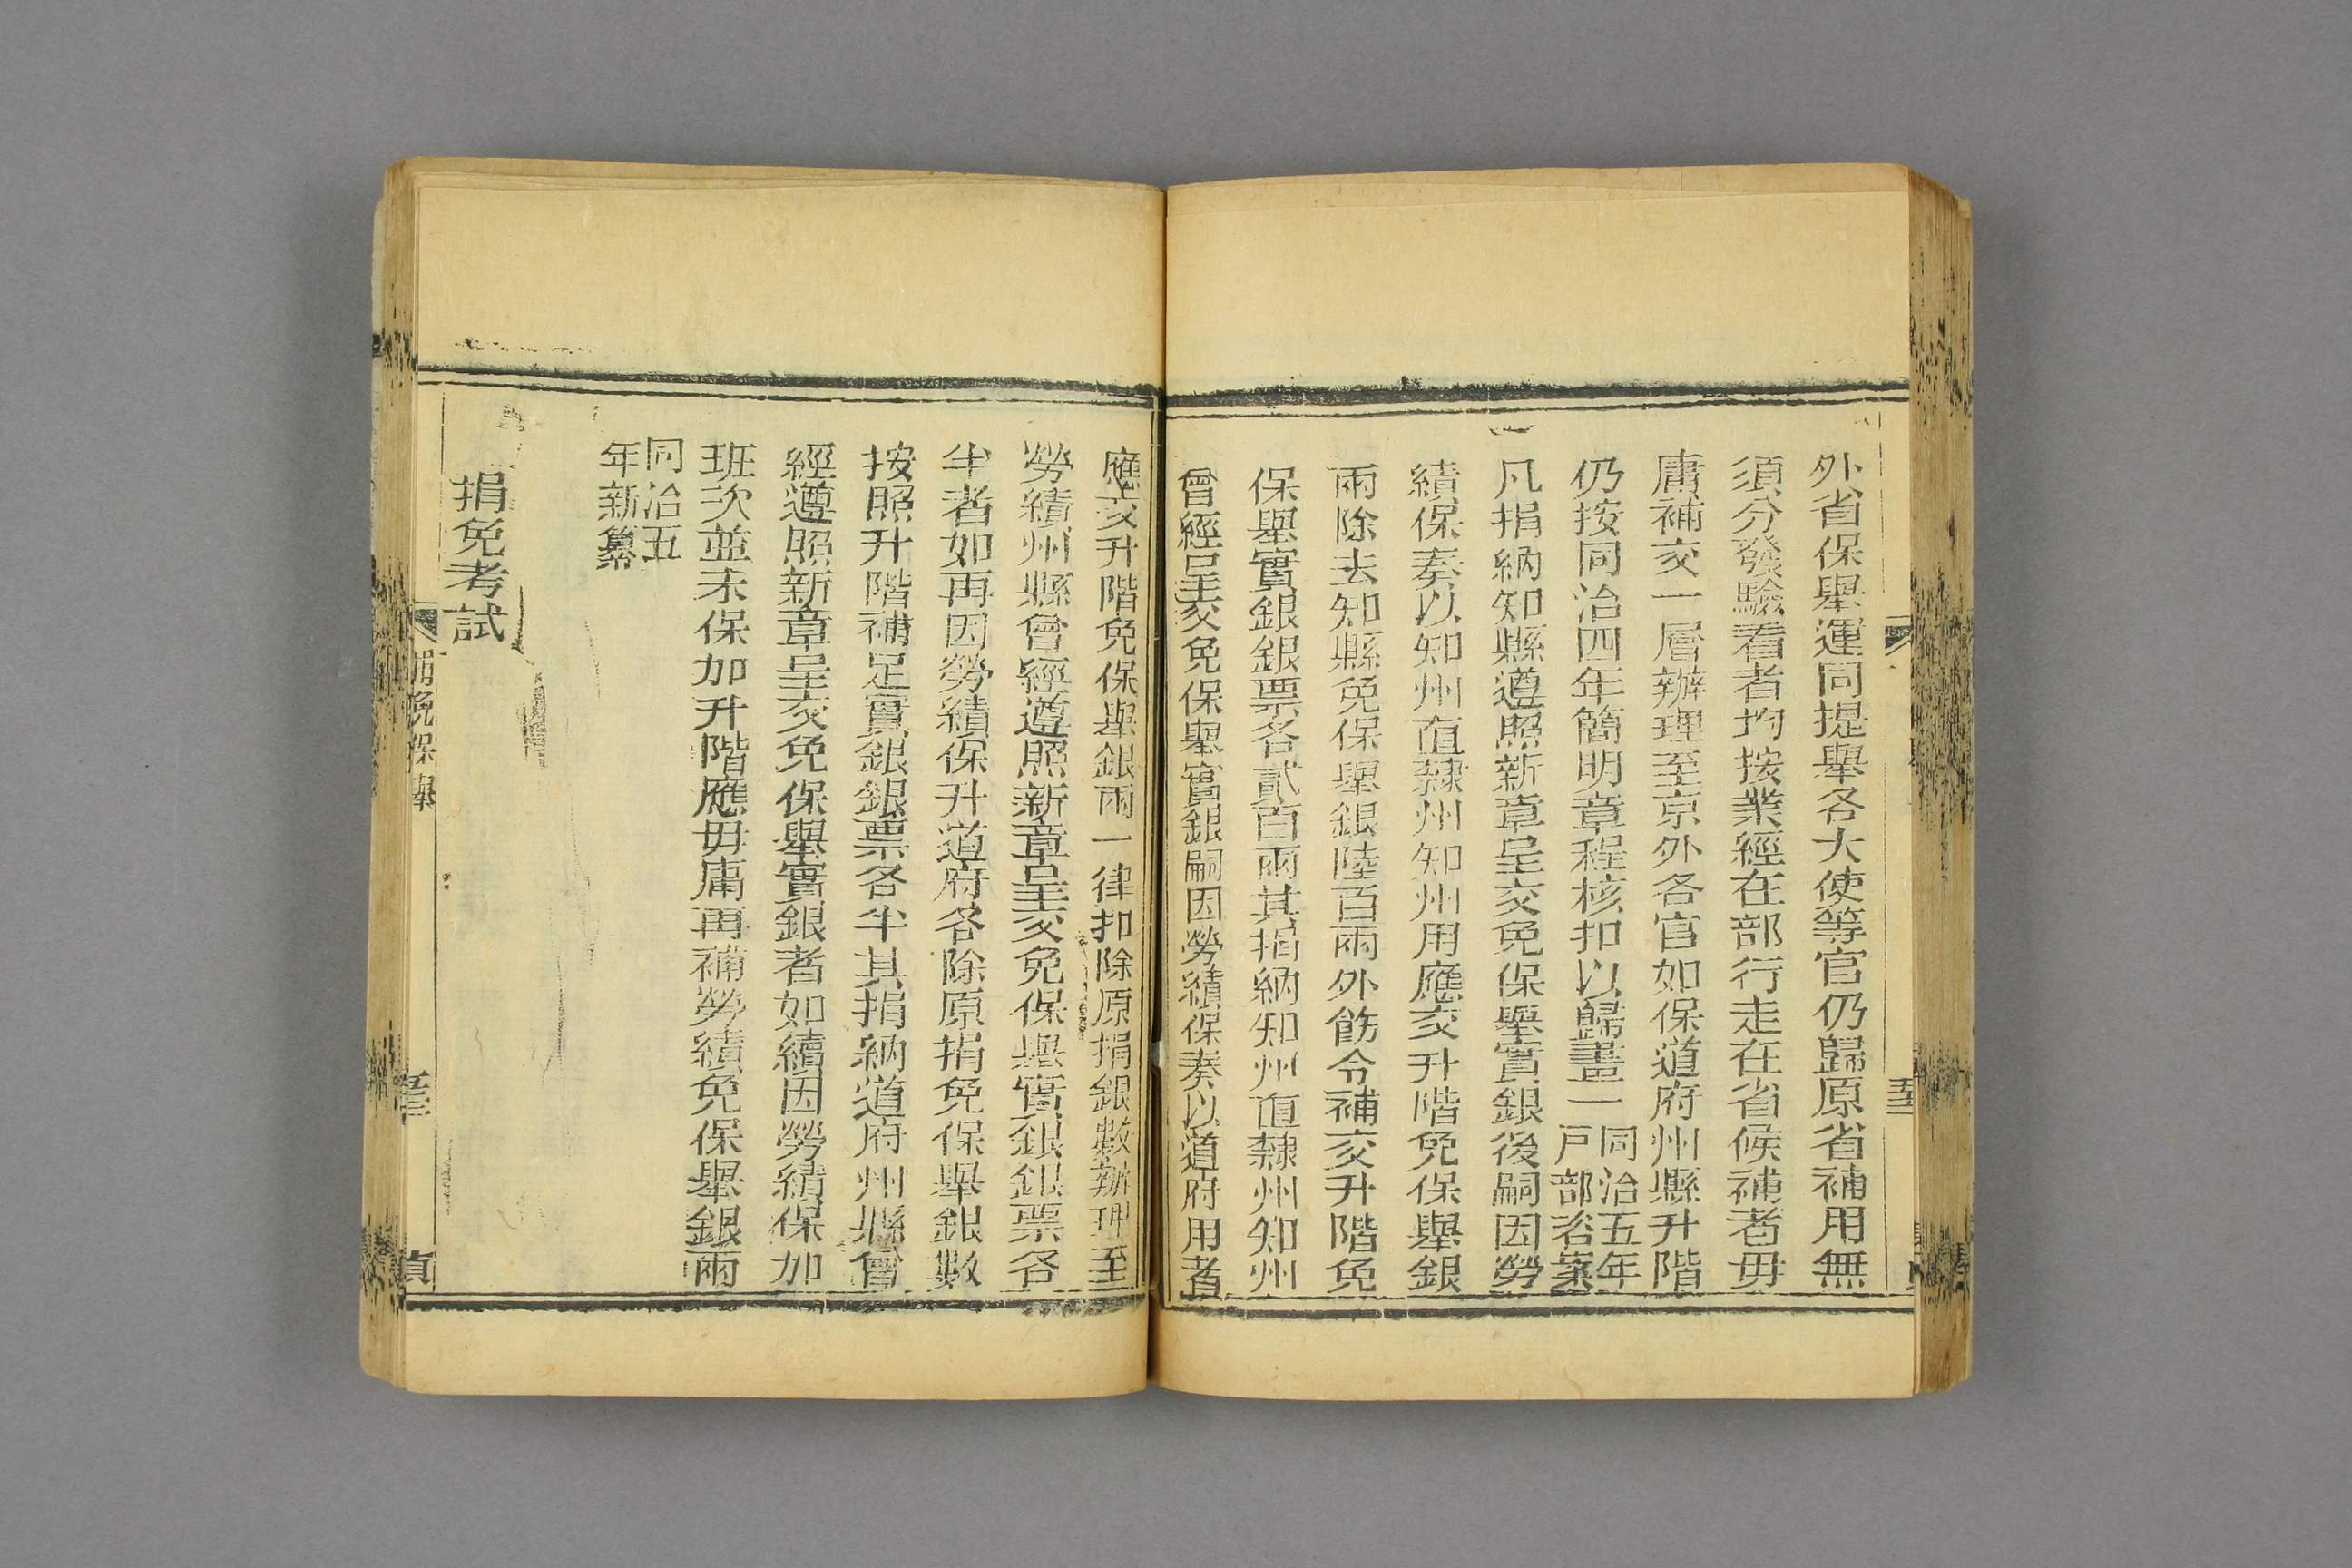 外省保舉運同提舉各大使等官仍歸原省補用無
須分發驗看者均按業經在部行走在省候補者毋
庸補交一層辦理至京外各官如保道府州縣升階
仍按同治四年簡明章程核扣以歸畫一同治五年
戶部咨案
凡捐納知縣遵照新章呈交免保舉實銀後嗣因勞
績保奏以知州直隸州知州用應交升階免保舉銀
兩除去知縣免保舉銀陸百兩外飭令補交升階免
保舉實銀銀票各貳百兩其捐納知州直隸州知州
曾經呈交免保舉實銀嗣因勞績保奏以道府用者
應交升階免保舉銀兩一律扣除原捐銀數辦理至
勞績州縣曾經遵照新章呈交免保舉實銀銀票各
半者如再因勞績保升道府各除原捐免保舉銀數
按照升階補足實銀銀票各半其捐納道府州縣曾
經遵照新章呈交免保舉實銀者如續因勞績保加
班次並未保加升階應毋庸再補勞績免保舉銀兩
同治五
年新纂
捐免考試
捐免保舉
貞